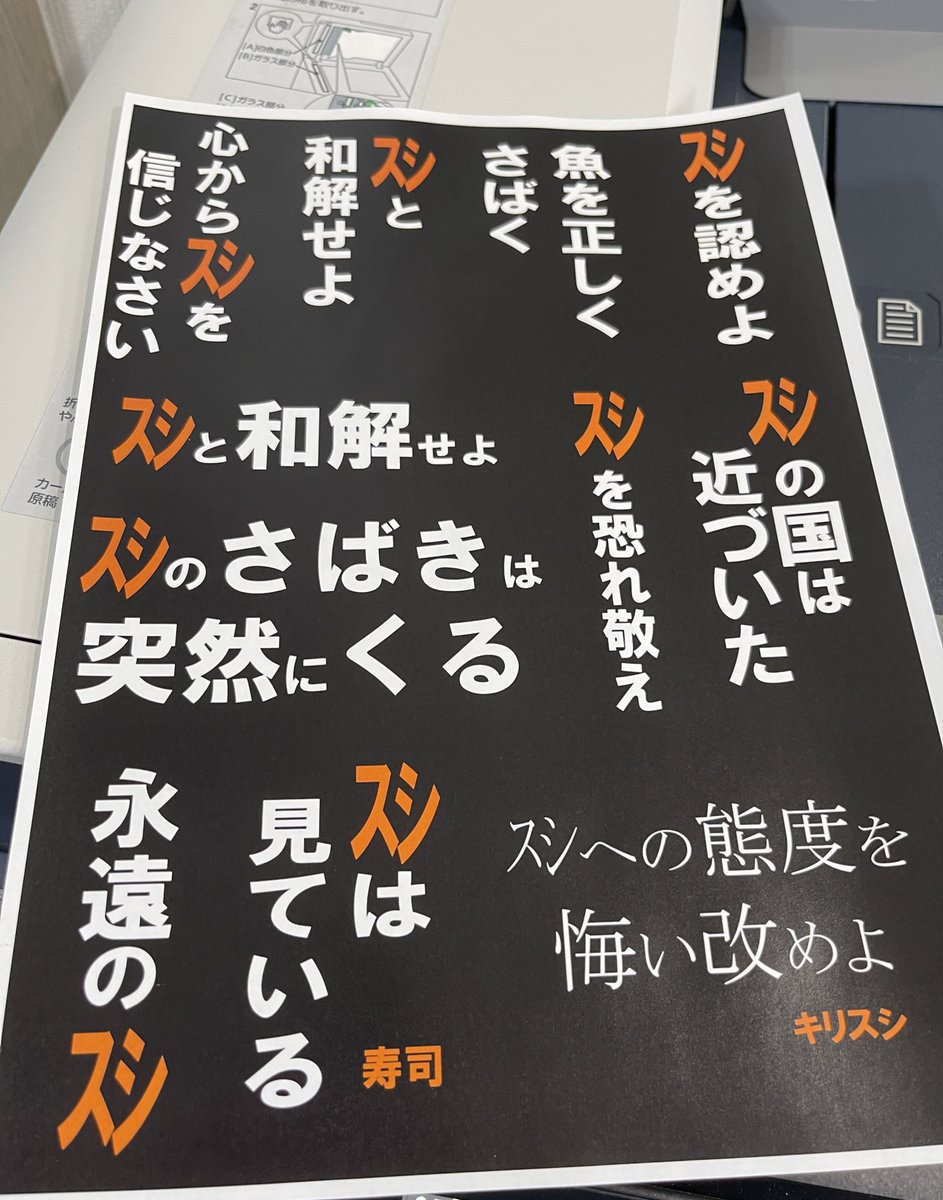 を取り出す。
2
[A]白色部分
[B]ガラス部分
[C]ガラス部分
スシを認めよ
魚を正しく
さばく
スシと
和解せよ
心からスシを
信じなさい
スシの国は
近づいた
スシを恐れ敬え
スシと和解せよ
スシのさばきは
突然にくる
スシへの態度を
悔い改めよ
キリスシ
スシは
見ている
寿司
永遠のスシ
折
や
カー
原稿